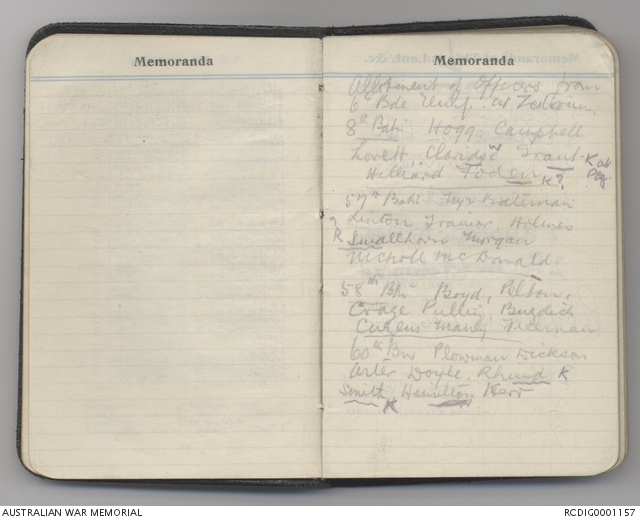 Memoranda
Memoranda
Allotment of Officers from
6th Bde Reinf. at Zeitoun
8th Batn Hogg, Campbell
Lovett, Claridge W Grant K at
Hilliard Foden K? Poz
57th Batn
Linton Trainor, Holmes
? R Smallhorn Morgan
Nicholl McDonald.
58th Bn Boyd, Pelton,
Pullin Burdich
Manly Freeman
60th Bn Plowman Dickson
Arter Doyle. Rhind K
Smith Hamilton Kerr
K
AUSTRALIAN WAR MEMORIAL
RCDIG0001157